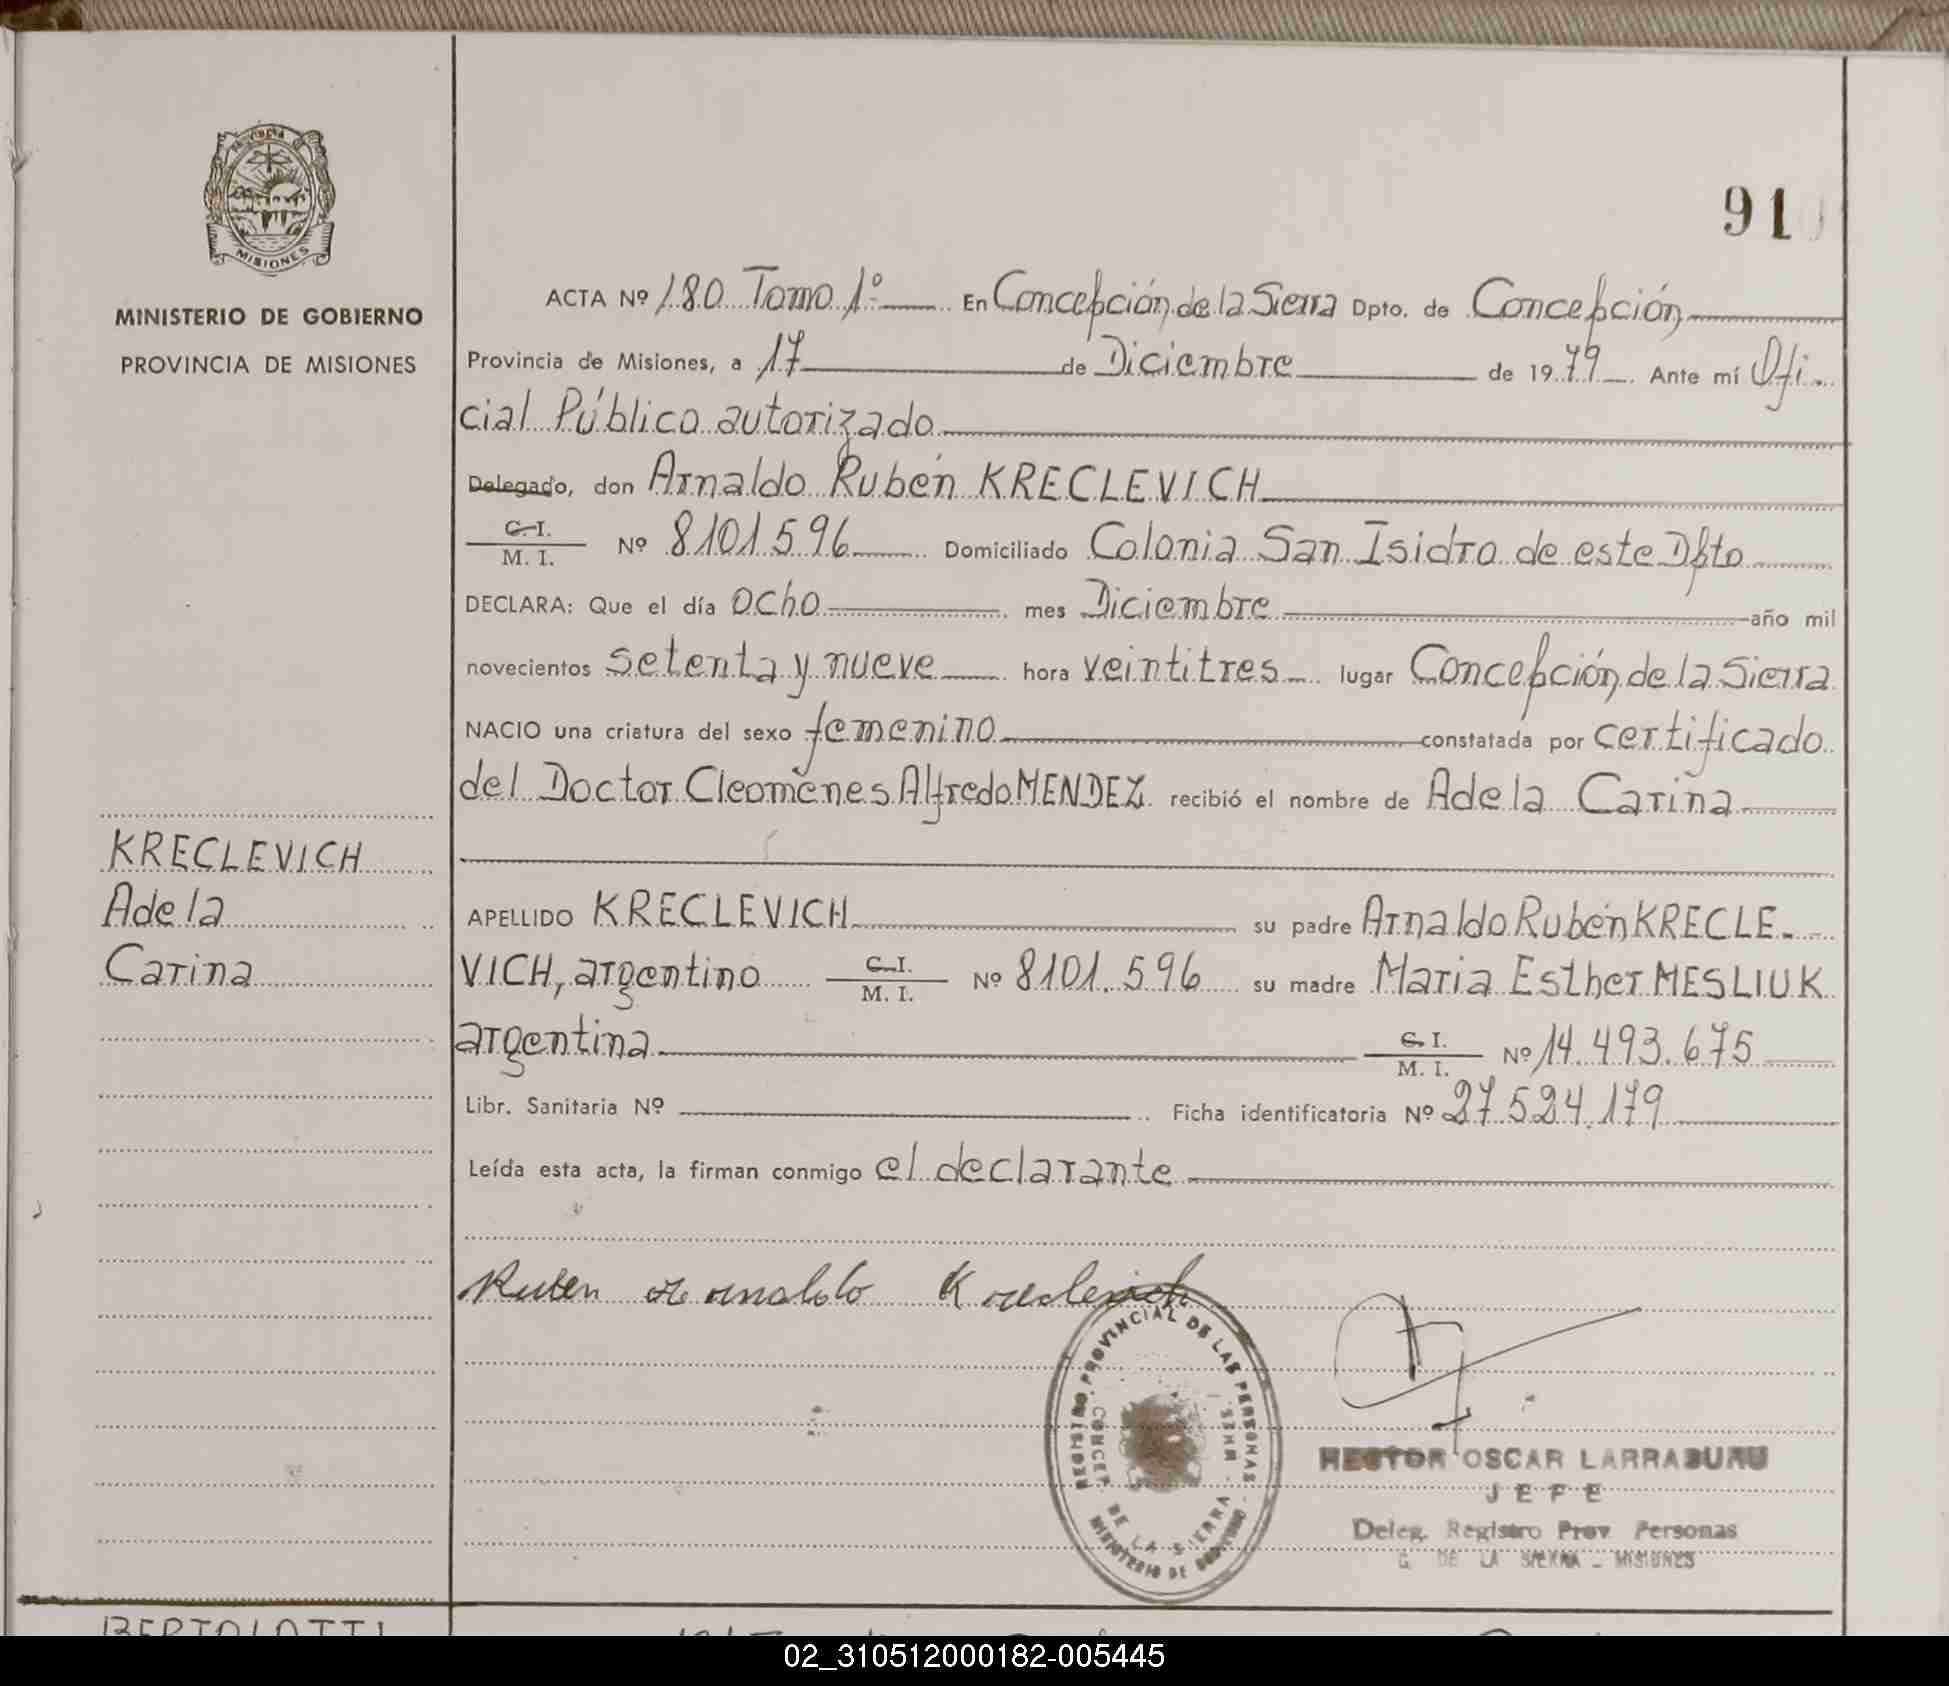 PROVINCIA DE
MISIONES
MINISTERIO DE GOBIERNO
PROVINCIA DE MISIONES
91
ACTA Nº 180 Tomo 1º En Concepción de la Sierra Dpto. de Concepción
Provincia de Misiones, a 17 de Diciembre de 1979 Ante mí Ofi-
cial Público autorizado
Delegado, don Arnaldo Rubén KRECLEVICH
C. I.
M. I. Nº 8101.596 Domiciliado Colonia San Isidro de este Dpto
DECLARA: Que el día ocho mes Diciembre año mil
novecientos setenta y nueve hora veintitres lugar Concepción de la Sierra
NACIO una criatura del sexo femenino constatada por certificado
del Doctor Cleomenes Alfredo MENDEZ recibió el nombre de Adela Carina
KRECLEVICH
Adela
Carina
APELLIDO KRECLEVICH su padre Arnaldo Rubén KRECLE-
VICH, argentino C. I. M. I. Nº 8101.596 su madre Maria Esther MESLIUK
argentina C. I. M. I. Nº 14.493.675
Libr. Sanitaria Nº Ficha identificatoria Nº 27.524.179
Leída esta acta, la firman conmigo el declarante
Ruben Arnaldo Kreclevich
REGISTRO PROVINCIAL DE LAS PERSONAS
CONCEP. DE LA SIERRA
MINISTERIO DE GOBIERNO
HECTOR OSCAR LARRABURU
JEFE
Deleg. Registro Prov. Personas
C. DE LA SIERRA - MISIONES
BERTOLOTTI
02_310512000182-005445